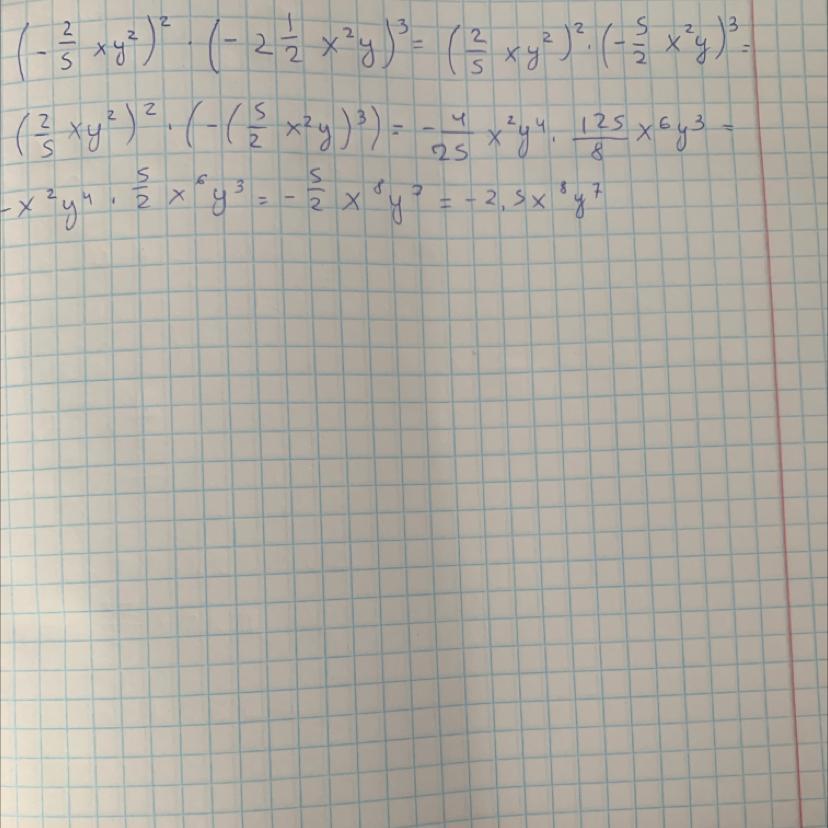 (-2/5 xy²)² · (-2 1/2 x²y)³ = (2/5 xy²)² · (-5/2 x²y)³ =
(2/5 xy²)² · (-(5/2 x²y)³) = -4/25 x²y⁴ · 125/8 x⁶y³ =
-x²y⁴ · 5/2 x⁶y³ = -5/2 x⁸y⁷ = -2,5x⁸y⁷